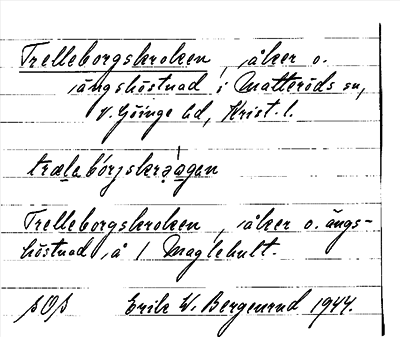 Trelleborgskroken, åker o.
ängshöstnad i Matteröds sn,
V. Göinge hd, Krist. l.
trælabórjskrǫ̀agan
Trelleborgskroken, åker o. ängs-
höstnad å 1 Maglehult.
SOS Erik W. Bergenrud 1944.